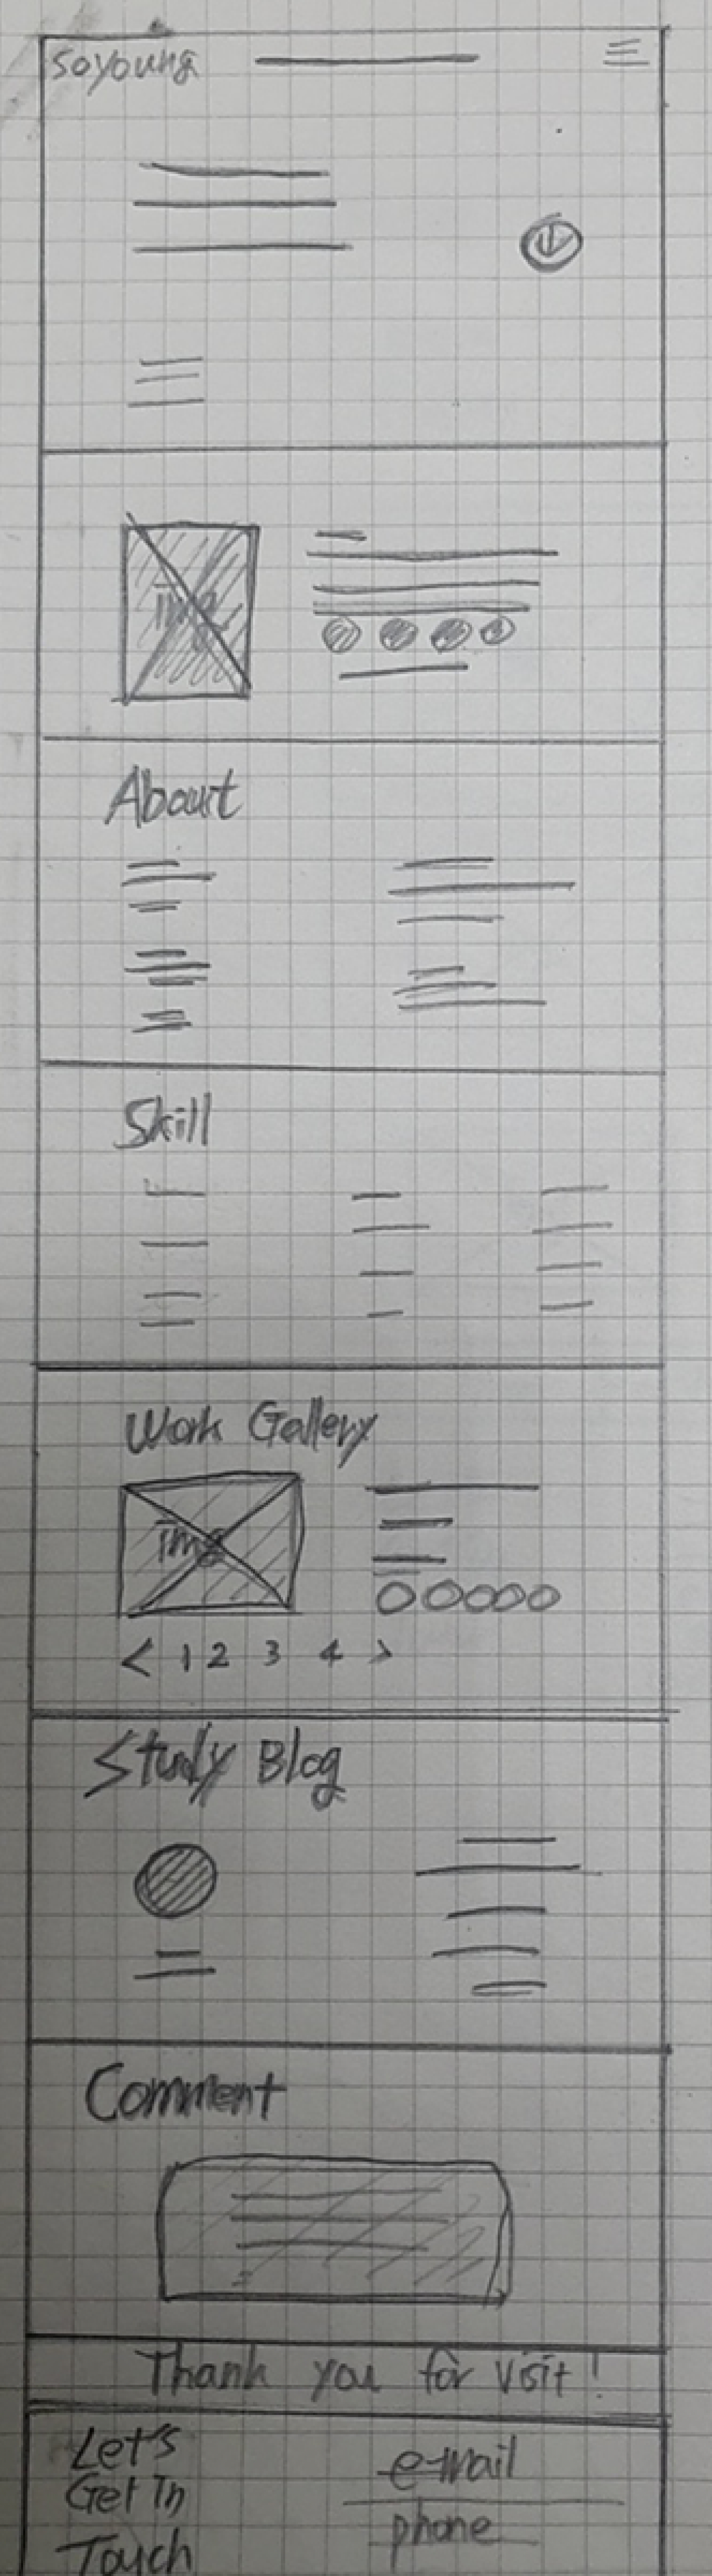 soyoung
img
About
Skill
Work Gallery
img
< 1 2 3 4 >
Study Blog
Comment
Thank you for visit!
Let's
Get In
Touch
e-mail
phone